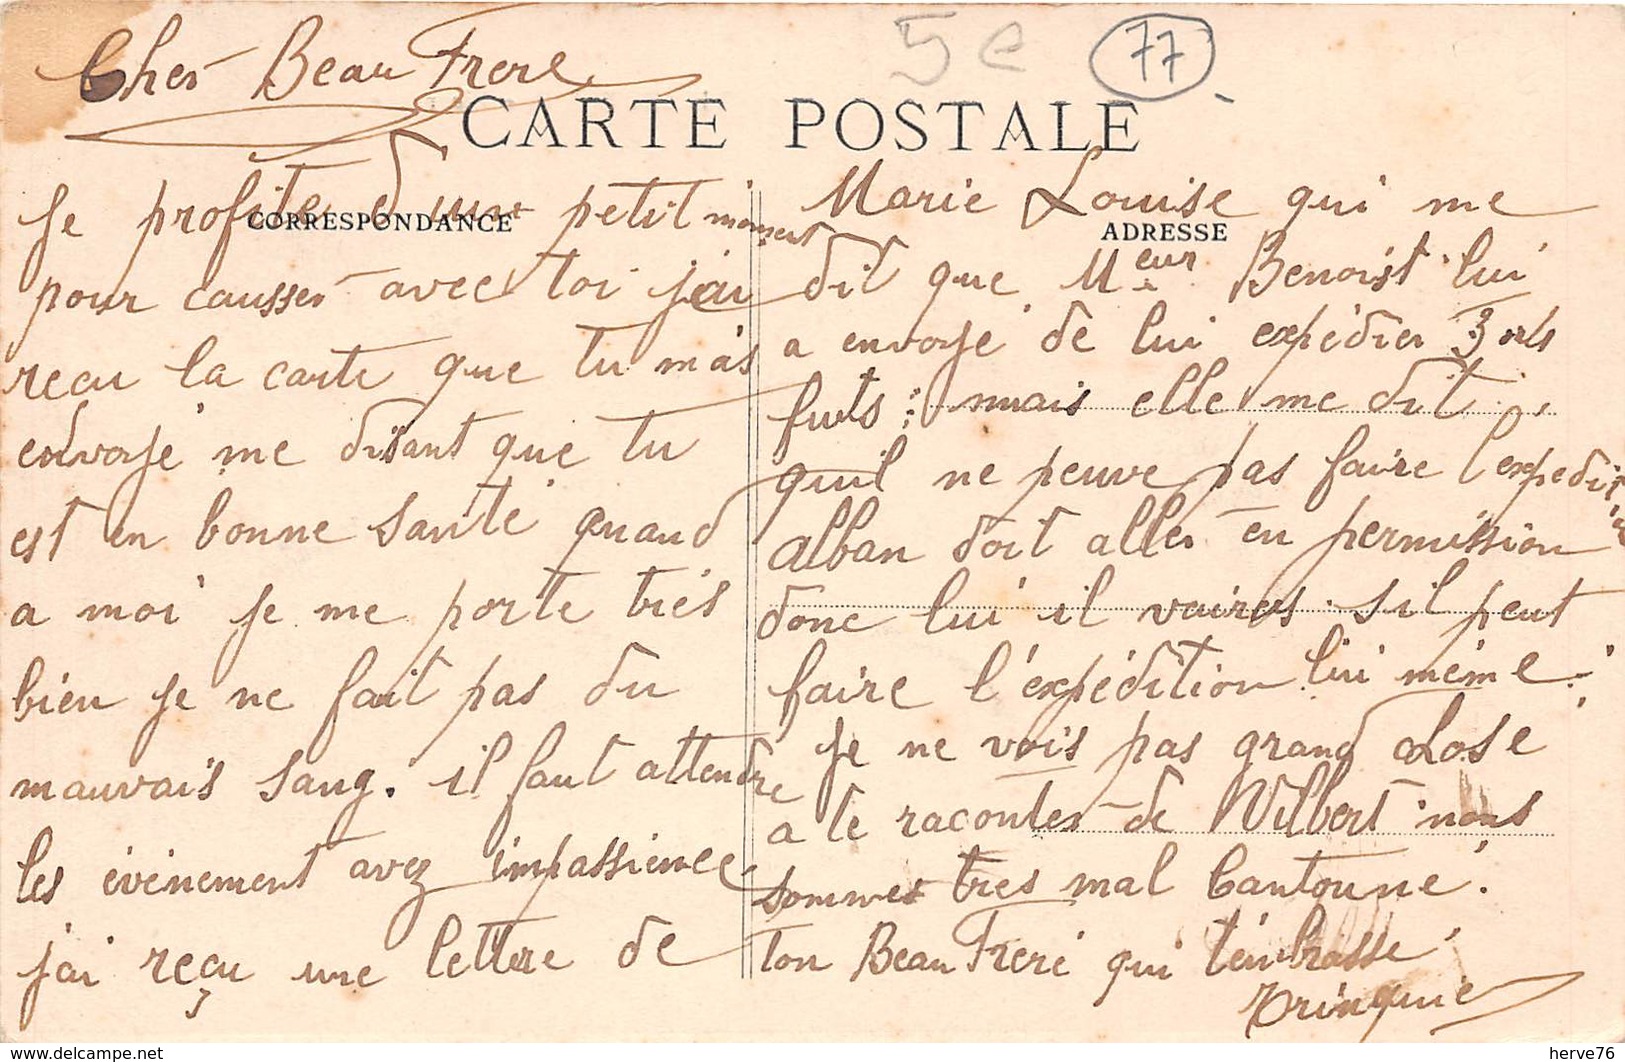 5e 77
Cher Beau Frere
CARTE POSTALE
CORRESPONDANCE
ADRESSE
Je profite d'un petit moment
pour causser avec toi j'ai
reçu la carte que tu m'as
envoyé me disant que tu
est en bonne santé quand
a moi je me porte très
bien je ne fait pas du
mauvais sang. il faut attendre
les évènement avez impassience
j'ai reçu une lettre de
Marie Louise qui me
dit que Meur Benoist lui
a envoyé de lui expédier 3
futs: mais elle me dit
quil ne peuve pas faire l'expedition
alban doit aller en permission
donc lui il vairas sil peut
faire l'expédition lui même.
Je ne vois pas grand chose
a te raconter de Vilbert nous
sommes tres mal Cantonné.
ton Beau Frere qui t'embrasse
Trinquie
delcampe.net
herve76